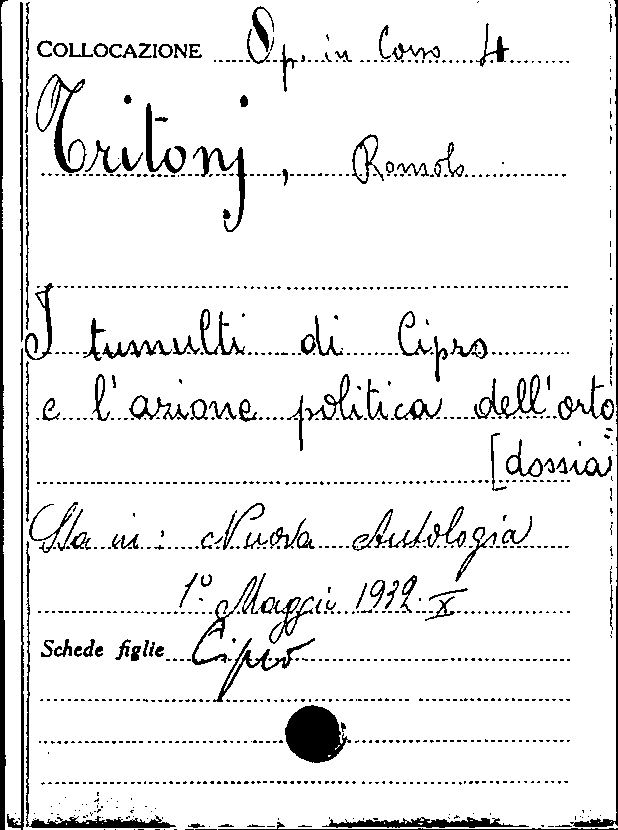 COLLOCAZIONE Op. in Corso 4
Tritonj, Romolo
I tumulti di Cipro
e l'azione politica dell'orto
[dossia"
Sta in: Nuova Antologia
1° Maggio 1932. X
Schede figlie Cipro